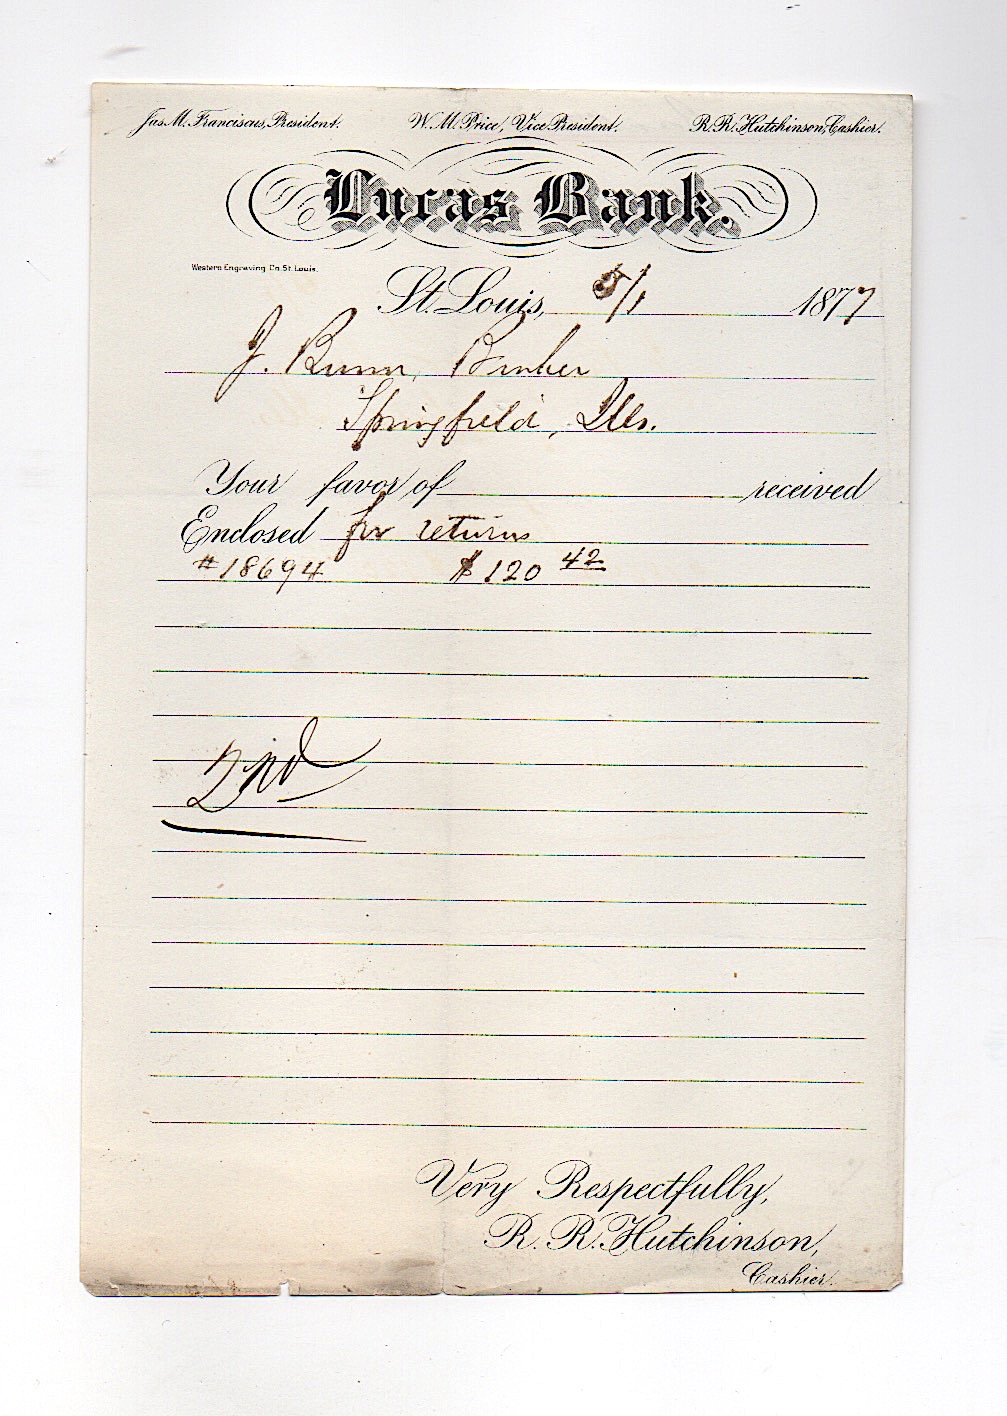 Jas. M. Franciscus, President. W. M. Price, Vice President. R. R. Hutchinson, Cashier.
Lucas Bank.
Western Engraving Co. St. Louis.
St. Louis, 5/1 1877
J. Bunn, Banker
Springfield, Ills.
Your favor of received
Enclosed for returns
#18694 $120 42
2nd
Very Respectfully,
R. R. Hutchinson,
Cashier.